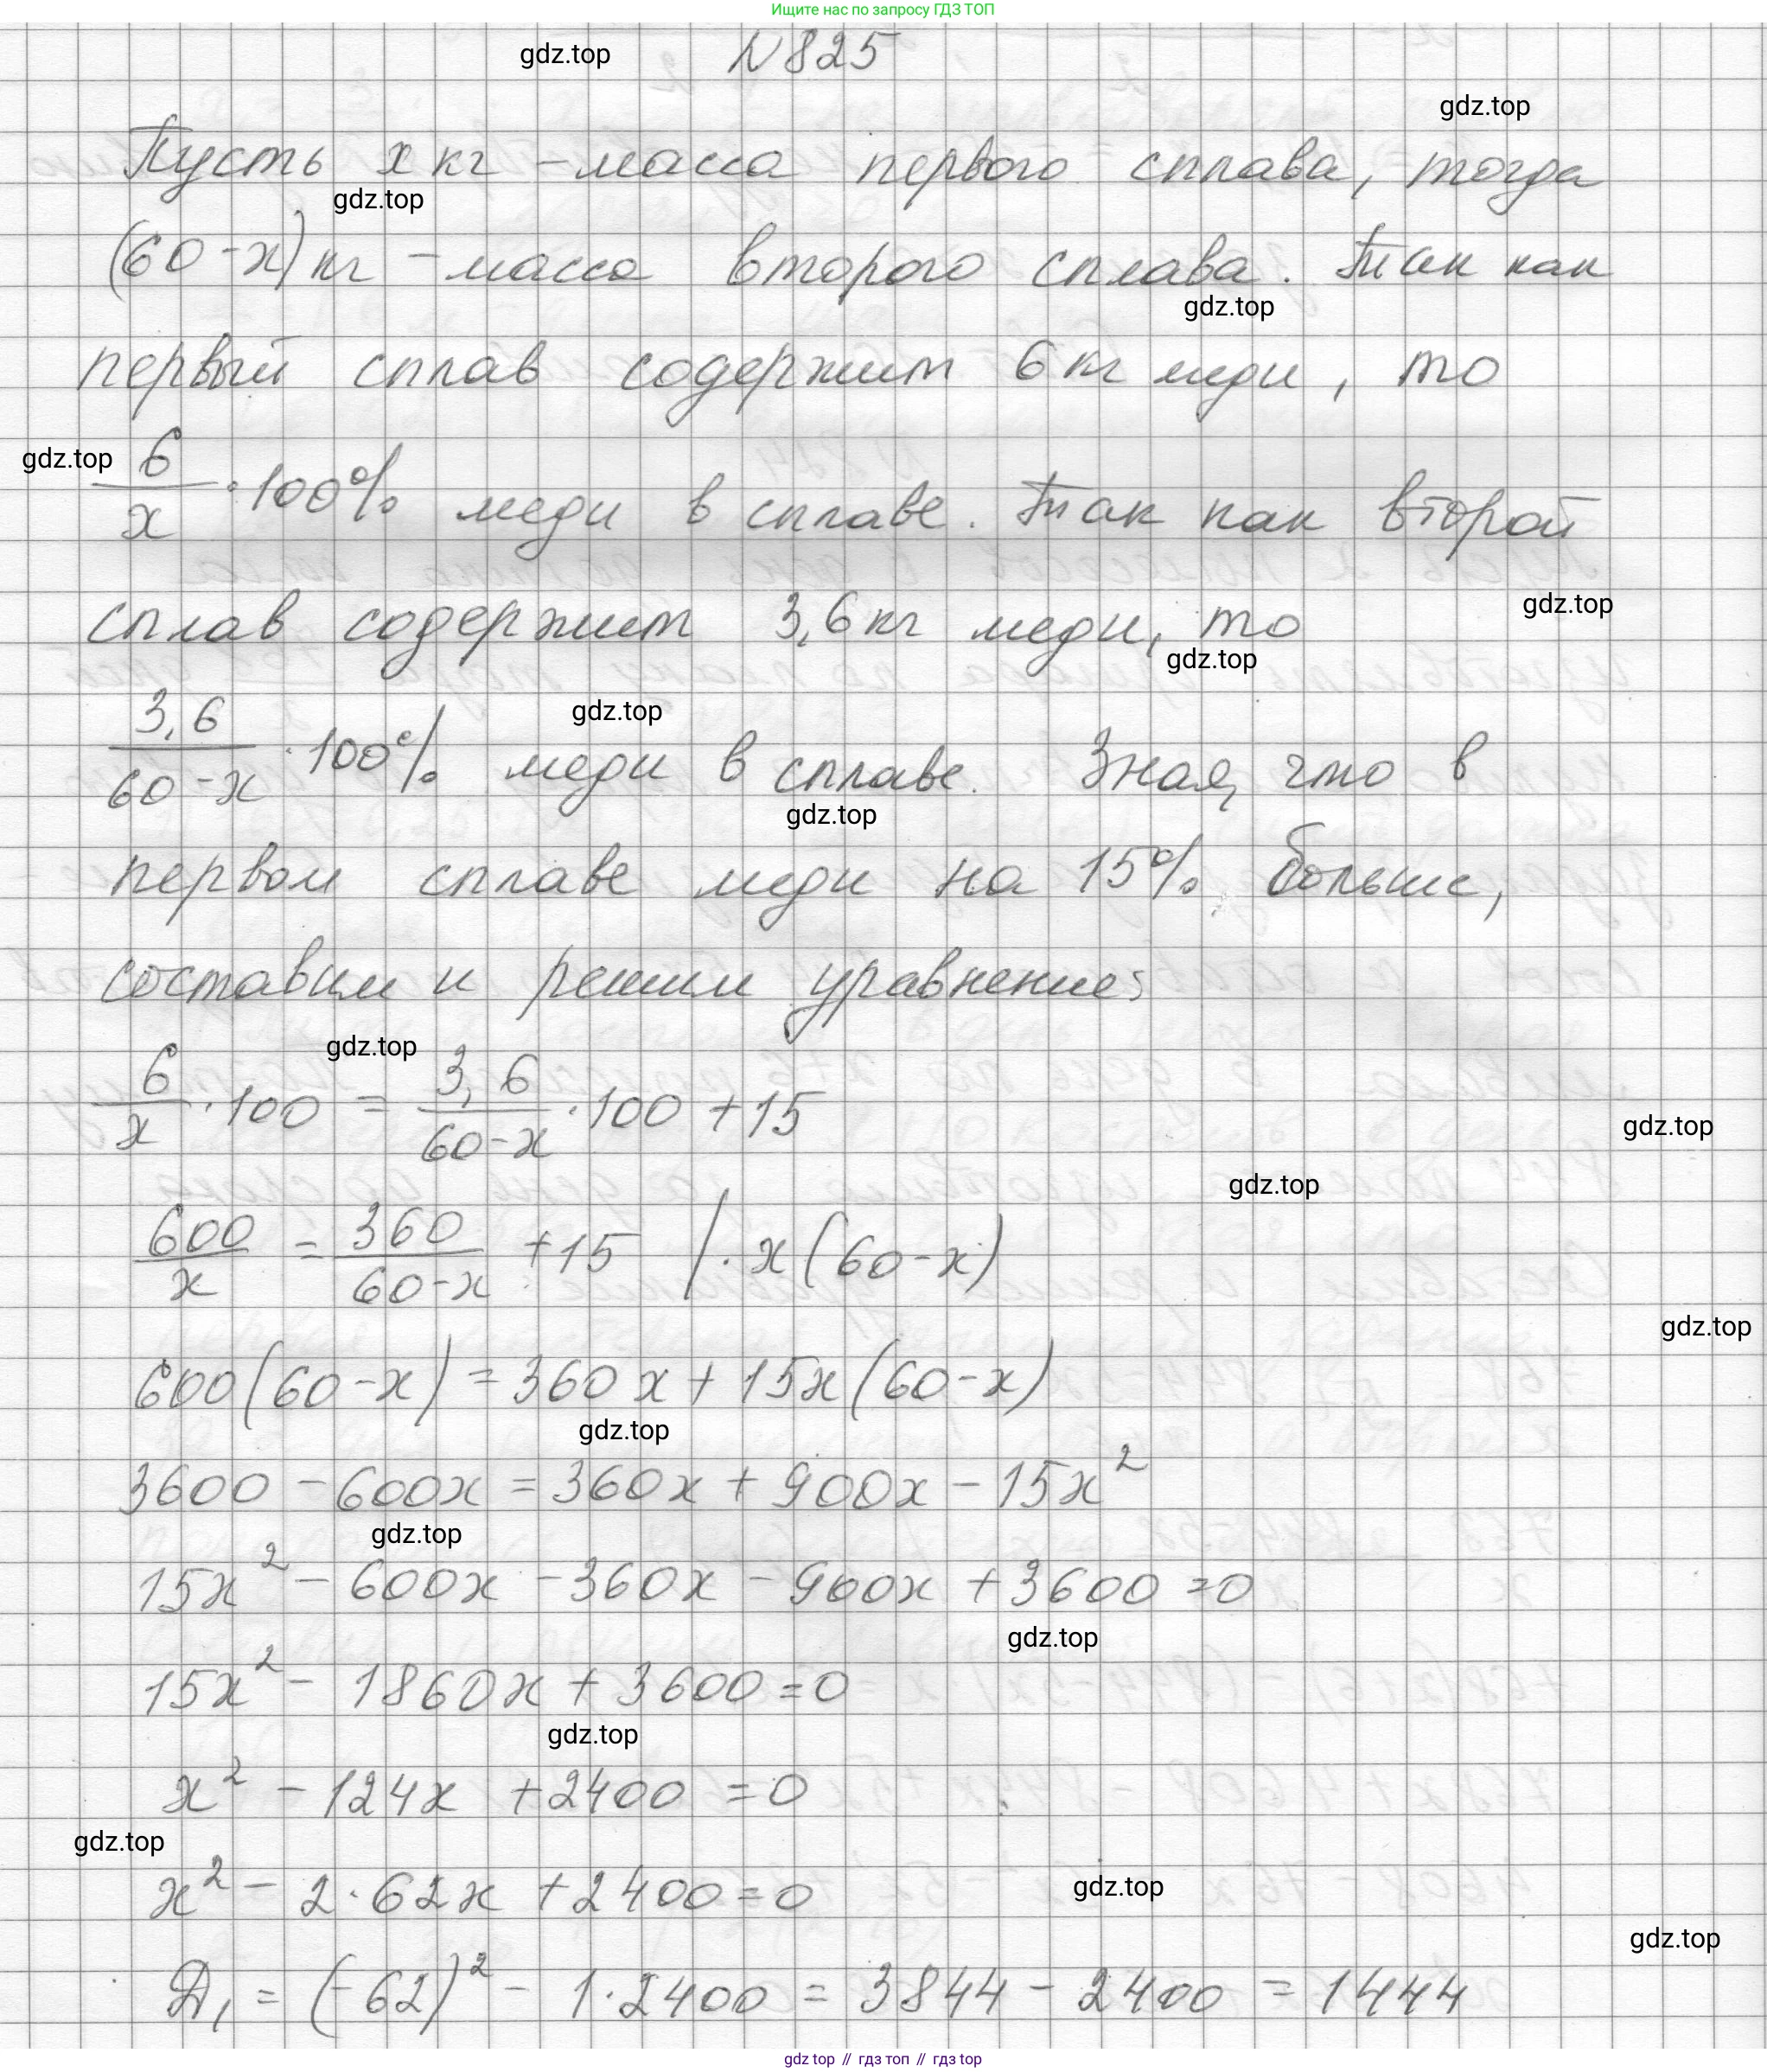 Ищите нас по запросу ГДЗ ТОП
gdz.top
N825
gdz.top
Пусть x кг - масса первого сплава, тогда
gdz.top
(60-x) кг - масса второго сплава. Так как
gdz.top
первый сплав содержит 6 кг меди, то
gdz.top
6/x · 100% меди в сплаве. Так как второй
gdz.top
сплав содержит 3,6 кг меди, то
gdz.top
gdz.top
3,6/(60-x) · 100% меди в сплаве. Зная, что в
gdz.top
первом сплаве меди на 15% больше,
составим и решим уравнение:
gdz.top
6/x · 100 = 3,6/(60-x) · 100 + 15
gdz.top
gdz.top
600/x = 360/(60-x) + 15 | · x(60-x)
gdz.top
600(60-x) = 360x + 15x(60-x)
gdz.top
3600 - 600x = 360x + 900x - 15x²
gdz.top
15x² - 600x - 360x - 900x + 3600 = 0
gdz.top
15x² - 1860x + 3600 = 0
gdz.top
x² - 124x + 2400 = 0
gdz.top
x² - 2·62x + 2400 = 0
gdz.top
gdz.top
D₁ = (-62)² - 1·2400 = 3844 - 2400 = 1444
gdz top // гдз топ // гдз top